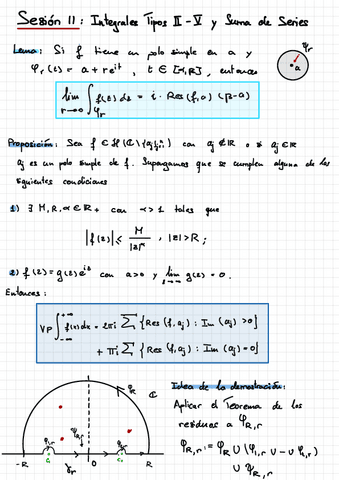 Sesión 11: Integrales Tipos III - V y Suma de Series
Lema: Si f tiene un polo simple en a y
φ_r(t) = a + re^{it}, t ∈ [α,β], entonces
lim_{r→0} ∫_{φ_r} f(z) dz = i · Res(f,a) (β-α)
φ_r
a
Proposición: Sea f ∈ H(ℂ\{a_j}_1^n) con a_j ∉ ℝ o si a_j ∈ ℝ
a_j es un polo simple de f. Supongamos que se cumplen alguna de las
siguientes condiciones
1) ∃ M, R, α ∈ ℝ+ con α > 1 tales que
|f(z)| ≤ M/|z|^α, |z| > R;
2) f(z) = g(z)e^{iz} con a>0 y lim g(z) = 0.
Entonces:
VP ∫_{-∞}^{+∞} f(x) dx = 2πi Σ {Res(f,a_j) : Im(a_j) > 0}
+ πi Σ {Res(f,a_j) : Im(a_j) = 0}
φ_R
ℂ
-R
0
R
Idea de la demostración:
Aplicar el Teorema de los
residuos a φ_{R,r}
φ_{R,r} := φ_R ∪ (φ_{1,r} ∪ … ∪ φ_{n,r})
∪ Ψ_{R,r}